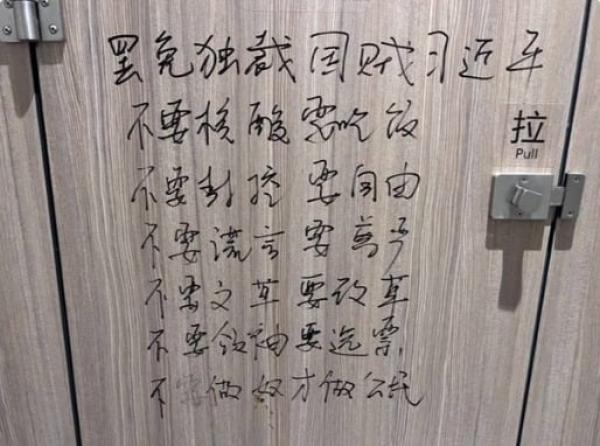 罢免独裁国贼习近平
不要核酸要吃饭
不要封控要自由
不要谎言要尊严
不要文革要改革
不要领袖要选票
不要做奴才做公民
拉
Pull